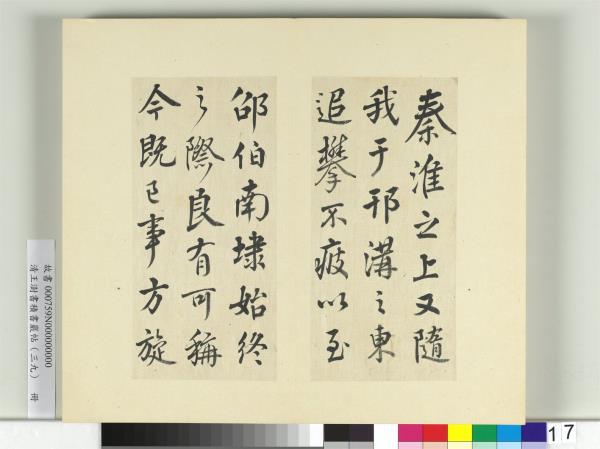 秦淮之上又隨
我于邗溝之東
追攀不疲以至
邵伯南埭始終
之際良有可稱
今既已事方旋
故書000759N000000000
清王澍書積書巖帖(三九) 冊
17